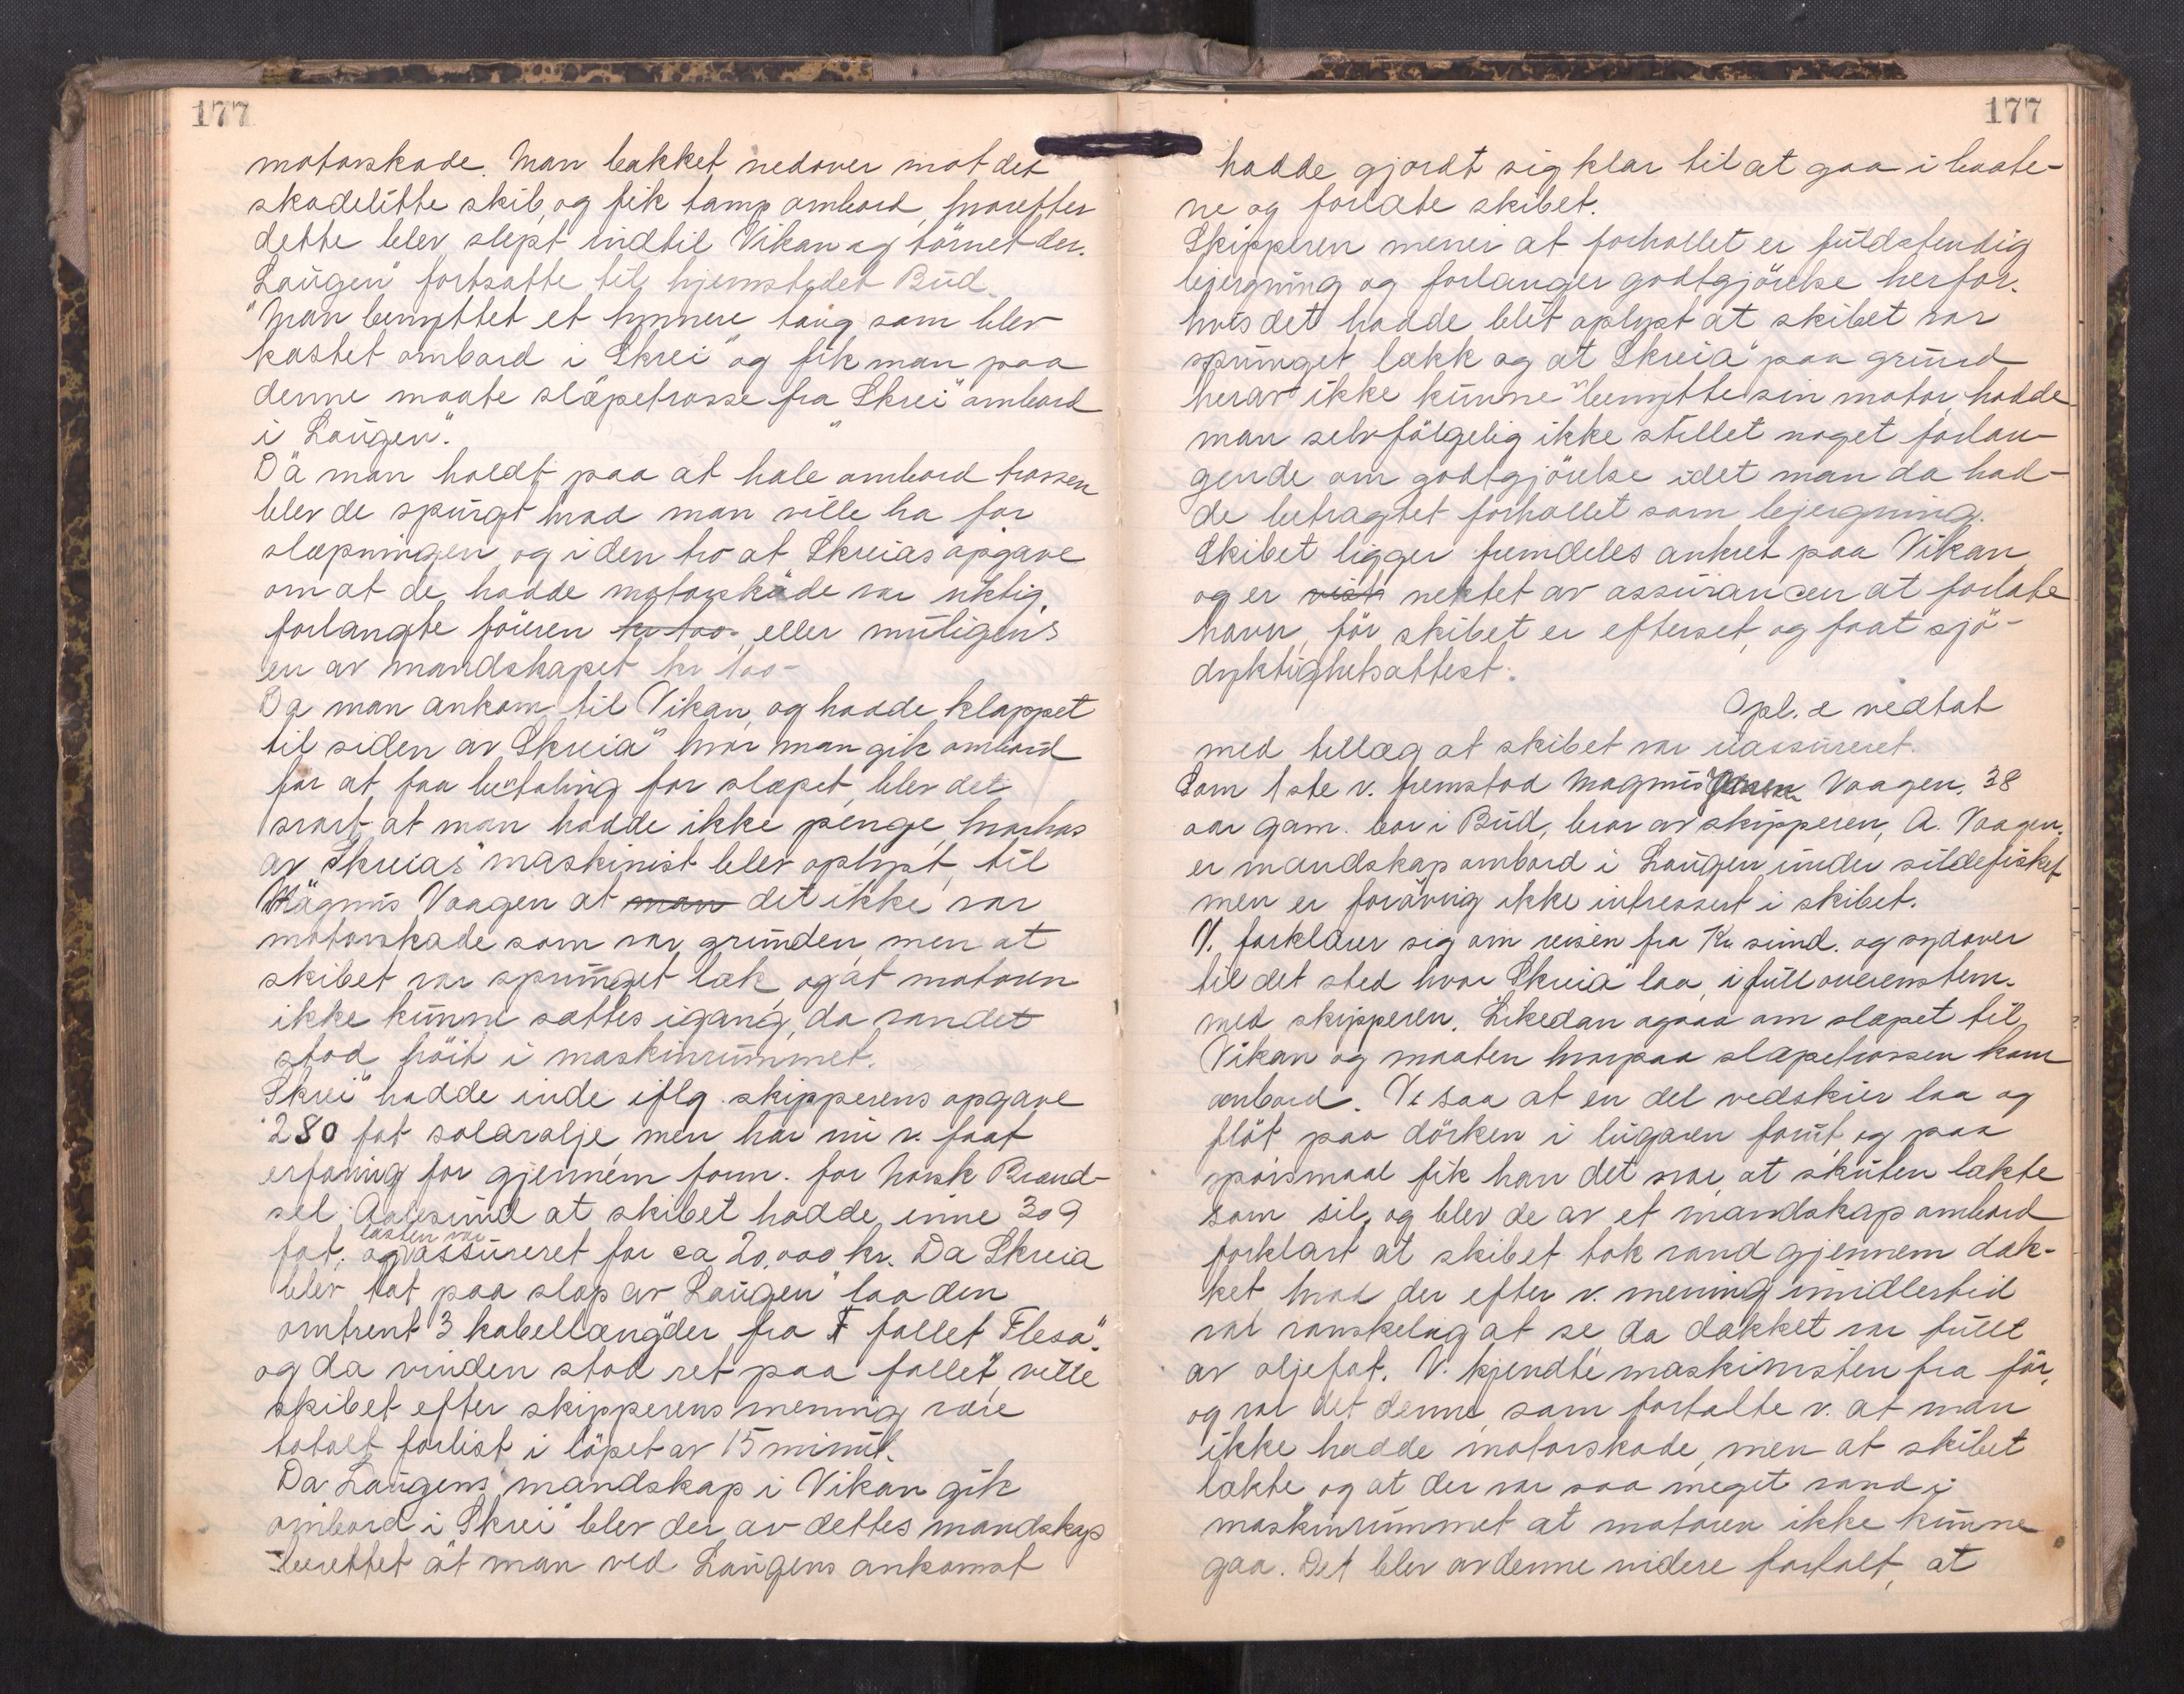 177
motorskade. Man bakket nedover mot det
skadelitte skib, og fik tamp ombord, hvorefter
dette blev slept indtil Vikan og törnet der.
"Laugen" fortsatte til hjemstedet Bud.
Man benyttet et tynnere taug som blev
kastet ombord i "Skrei" og fik man paa
denne maate slæpetrosse fra "Skrei" ombord
i "Laugen".
Da man holdt paa at hale ombord trossen
blev de spurgt hvad man ville ha for
slæpningen og i den tro at Skreias opgave
om at de hadde motorskade var riktig,
forlangte föreren kr 100. eller muligens
en av mandskapet kr 100-
Da man ankom til Vikan, og hadde klappet
til siden av "Skreia" hvor man gik ombord
for at faa betaling for slæpet, blev det
svart at man hadde ikke penge, hvorhos
av "Skreias" maskinist blev oplyst, til
Magnus Vaagen at man det ikke var
motorskade som var grunden, men at
skibet var sprunget læk og at motoren
ikke kunne sættes igang, da vandet
stod höit i maskinrummet.
"Skrei" hadde inde iflg. skipperens opgave
280 fat solarolje, men har nu v. faat
erfaring for gjennem forr. for Norsk Brænd-
sel Aalesund at skibet hadde inne 309
fat. og lasten var assureret for ca 20,000 kr. Da Skreia
blev tat paa slæp av "Laugen" laa den
omtrent 3 kabellængder fra F fallet "Flesa".
og da vinden stod ret paa fallet, ville
skibet efter skipperens mening være
totalt forlist i löpet av 15 minut.
Da Laugens mandskap i Vikan gik
ombord i "Skrei" blev der av dettes mandskap
berettet at man ved Laugens ankomst
177
hadde gjordt sig klar til at gaa i baate-
ne og forlate skibet.
Skipperen mener at forhollet er fuldstendig
bjergning og forlanger godtgjörelse herfor.
hvis det hadde blit oplyst at skibet var
sprunget lækk og at "Skreia" paa grund
herav ikke kunne benytte sin motor, hadde
man selvfölgelig ikke stillet noget forlan-
gende om godtgjörelse idet man da had-
de betragtet forhollet som bjergning.
Skibet ligger fremdeles ankret paa Vikan
og er visst nektet av assurancen at forlate
havn, för skibet er efterset, og faat sjö-
dyktighetsattest.
Opl. & vedtat
med tillæg at skibet var uassureret.
Som 1ste v. fremstod Magnus Vaagen, 38
aar gam. bor i Bud, bror av skipperen, A. Vaagen.
er mandskap ombord i Laugen under sildefisket
men er forövrig ikke intressert i skibet.
V. forklarer sig om reisen fra Kr sund. og sydover
til det sted hvor "Skreia" laa, i full overenstem.
med skipperen. Likedan ogsaa om slæpet til
Vikan og maaten hvorpaa slæpetrossen kom
ombord. Vi saa at en del vedskier laa og
flöt paa dörken i lugaren forut, og paa
spörsmaal fik han det svar, at skuten lækte
som sil, og blev de av et mandskap ombord
forklart at skibet tok vand gjennem dæk-
ket, hvad der efter v. mening imidlertid
var vanskelig at se da dækket var fullt
av oljefat. V. kjendte maskinisten fra för,
og var det denne som fortalte v. at man
ikke hadde motorskade, men at skibet
lækte og at der var saa meget vand i
maskinrummet at motoren ikke kunne
gaa. Det blev av denne videre fortalt, at